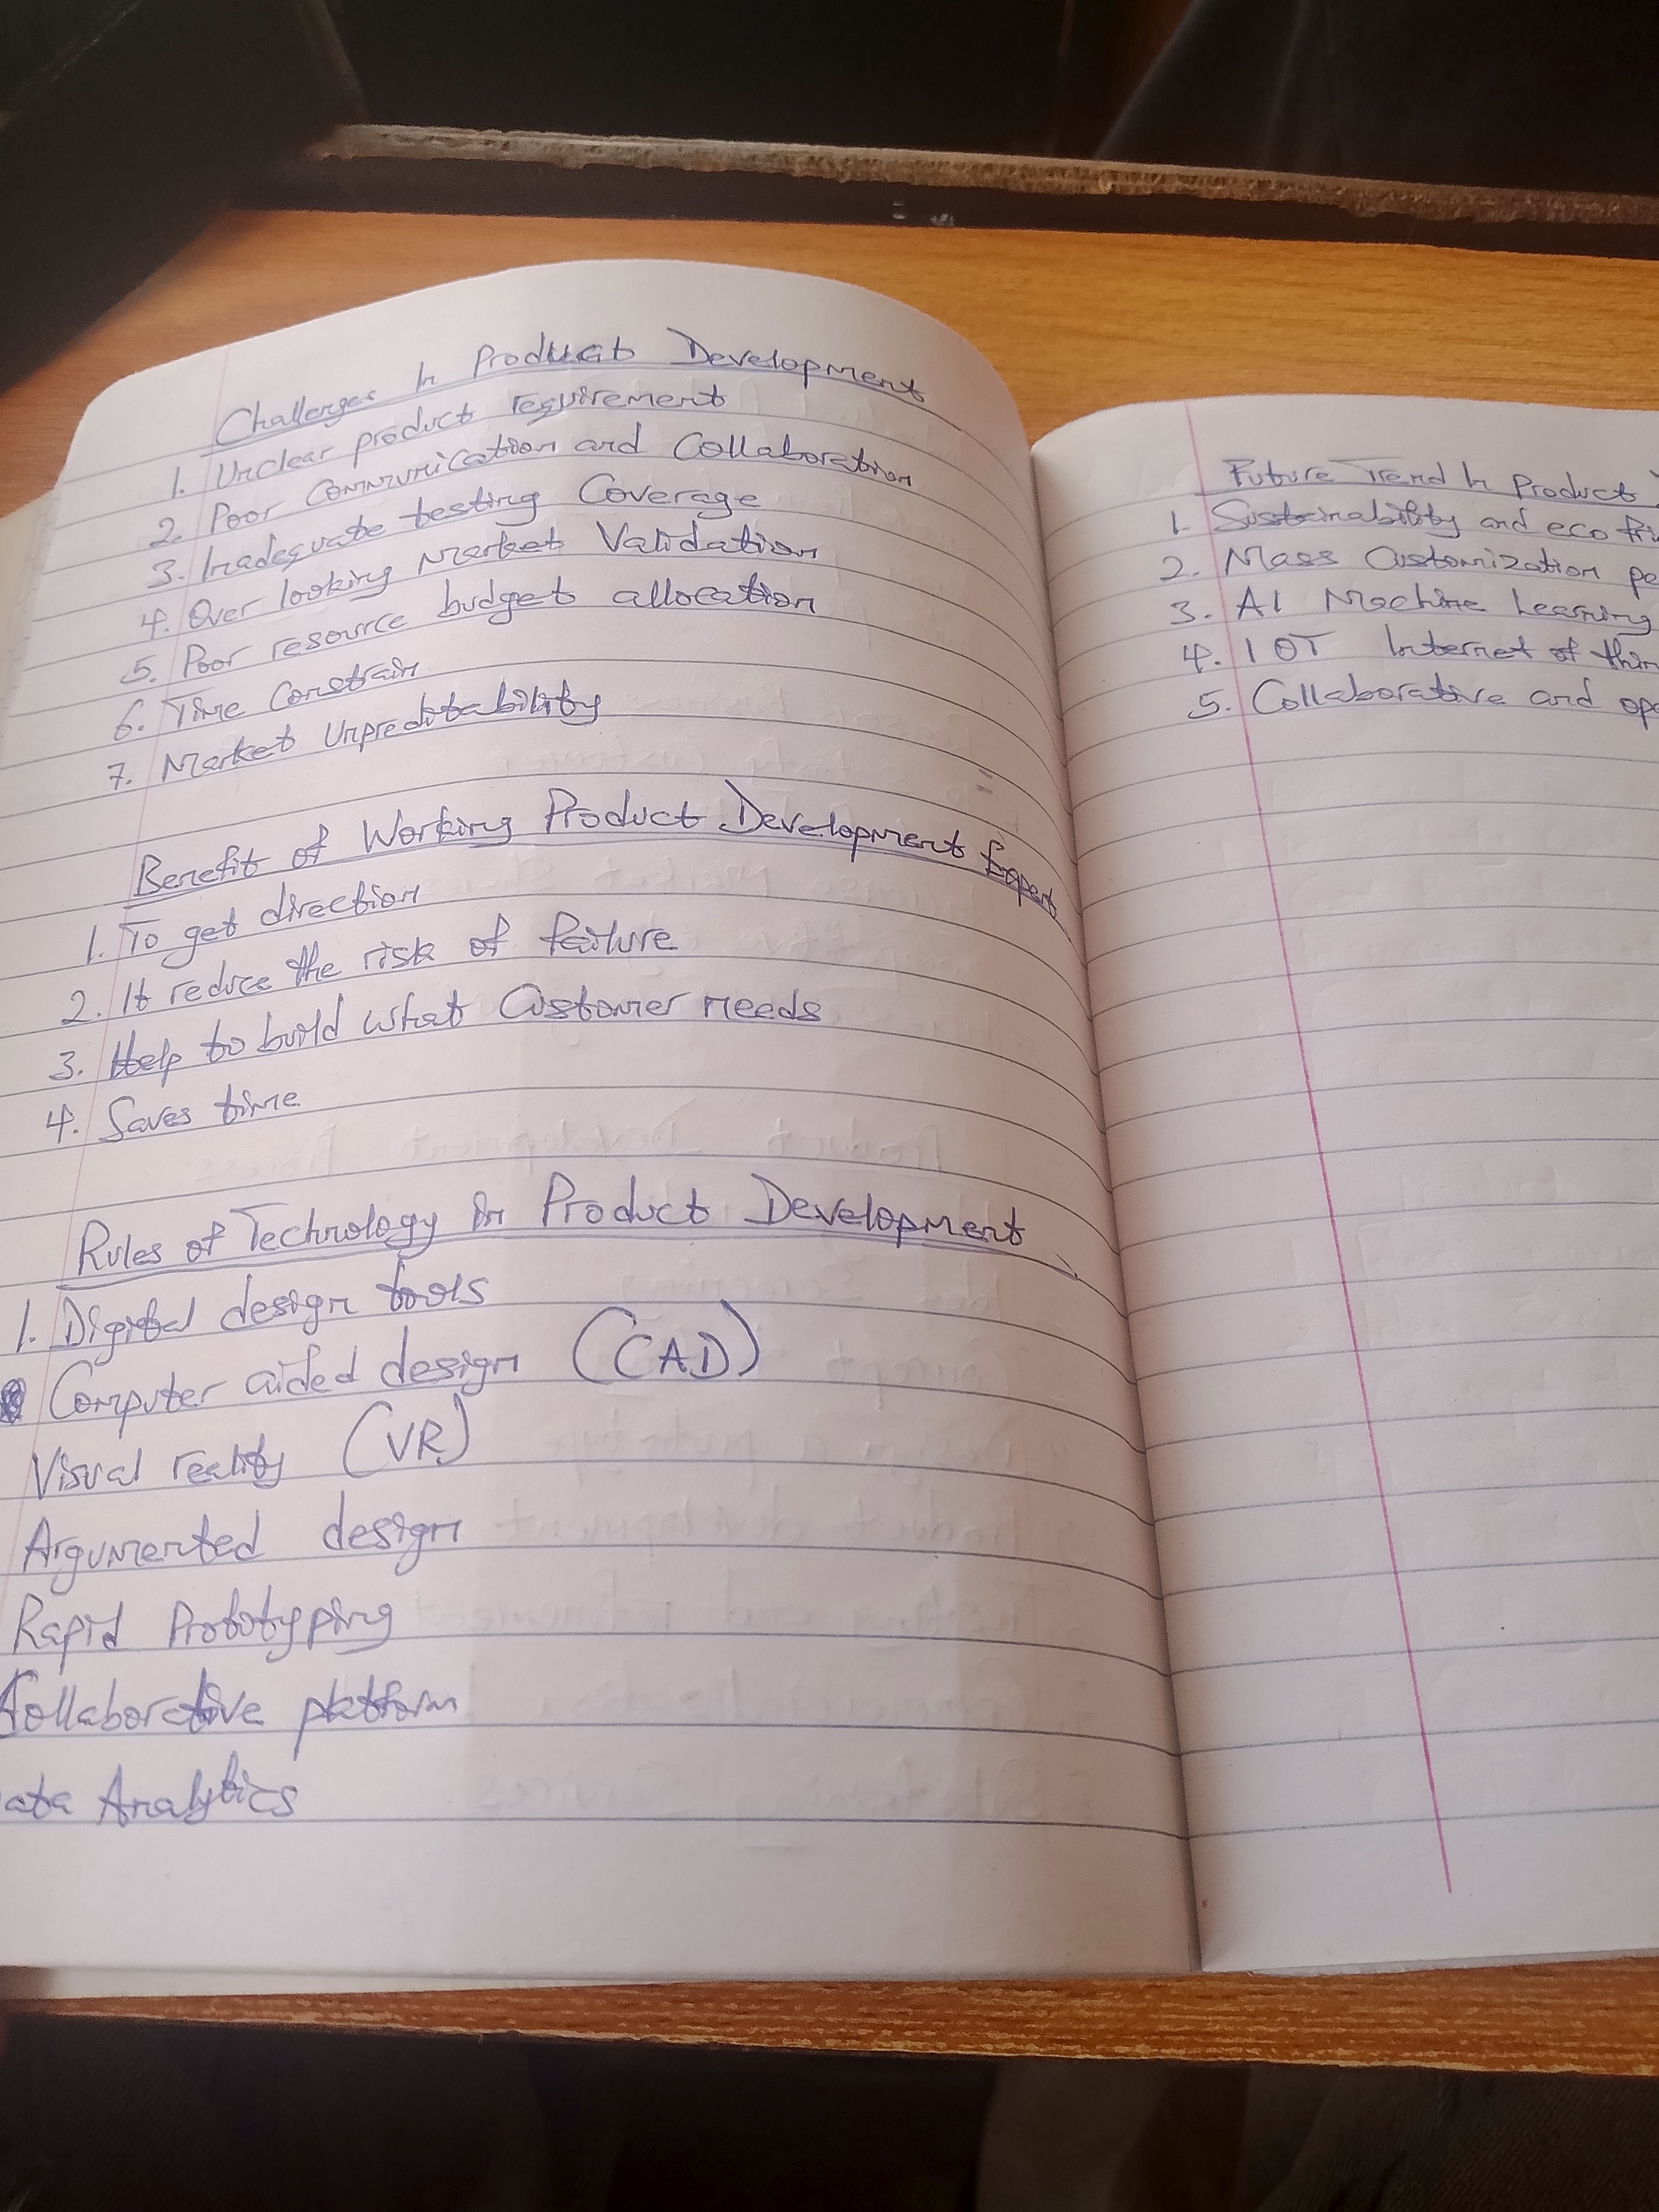 Challenges In Product Development
1. Unclear product requirement
2. Poor Communication and Collaboration
3. Inadequate testing Coverage
4. Over looking Market Validation
5. Poor resource budget allocation
6. Time Constrain
7. Market Unpreditability
Benefit of Working Product Development Expert
1. To get direction
2. It reduce the risk of failure
3. Help to build what Customer needs
4. Saves time
Rules of Technology in Product Development
1. Digital design tools
Computer aided design (CAD)
Visual reality (VR)
Argumented design
Rapid Prototyping
Collaborative platform
ata Analytics
Future Trend In Product
1. Sustainability and eco fri
2. Mass Customization pe
3. AI Machine Learning
4. IOT Internet of thin
5. Collaborative and ope